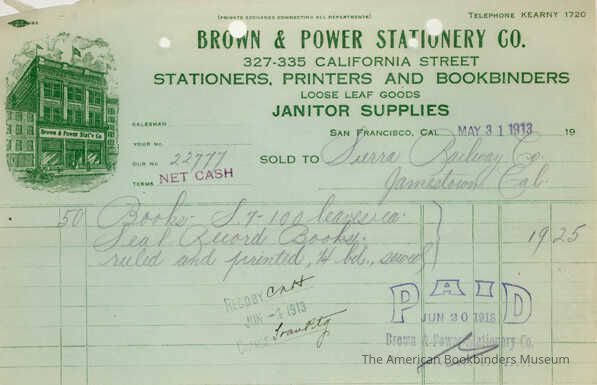 (PRIVATE EXCHANGE CONNECTING ALL DEPARTMENTS)
TELEPHONE KEARNY 1720
BROWN & POWER STATIONERY CO.
327-335 CALIFORNIA STREET
STATIONERS, PRINTERS AND BOOKBINDERS
LOOSE LEAF GOODS
JANITOR SUPPLIES
Brown & Power Stat'y Co.
SALESMAN
SAN FRANCISCO, CAL. MAY 31 1913 19
YOUR NO.
OUR NO. 22777
SOLD TO Sierra Railway Co.
TERMS NET CASH
Jamestown Cal.
50 Books - S 7 - 100 leaves ea.
Seal Record Books.
ruled and printed, ¼ bd., sewed
19 25
REC'D BY
JUN - 1913
PAID
JUN 20 1913
Brown & Power Stationery Co.
The American Bookbinders Museum